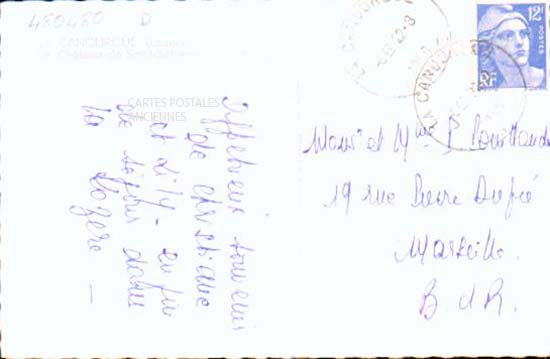 480480 D
LA CANOURGUE
CARTES POSTALES
ANCIENNES
Affectueux souvenir
de Christiane
et Lily en fin
de séjour dans
la Lozère —
LA CANOURGUE
12F
POSTES
RF
Monsr et Mme P.
19 rue Pierre Dupré
Marseille.
B d R.